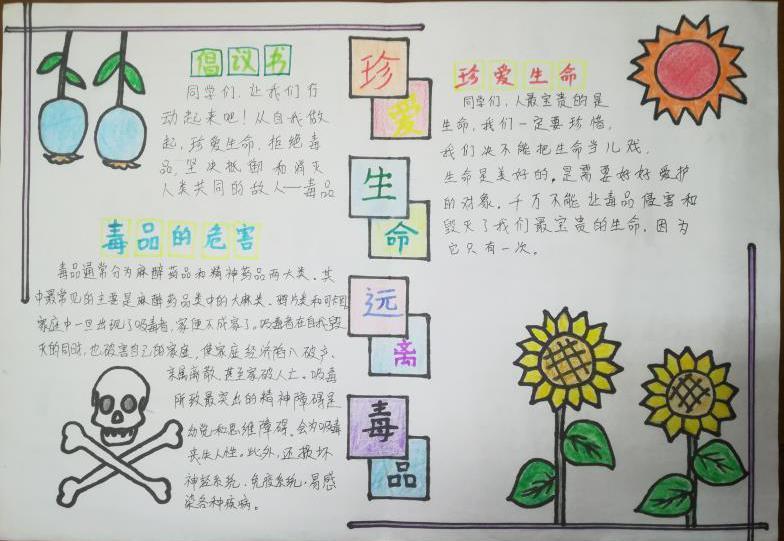 倡议书
同学们，让我们行
动起来吧！从自我做
起，珍爱生命，拒绝毒
品，坚决抵制和消灭
人类共同的敌人——毒品
毒品的危害
毒品通常分为麻醉药品和精神药品两大类。其
中最常见的主要是麻醉药品类中的大麻类、鸦片类和可卡因
家庭中一旦出现了吸毒者，家便不成家了。吸毒者在自我毁
灭的同时，也破害自己的家庭，使家庭经济陷入破产、
亲属离散、甚至家破人亡。吸毒
所致最突出的精神障碍是
幻觉和思维障碍、会为吸毒
丧失人性。此外，还损坏
神经系统，免疫系统，易感
染各种疾病。
珍
爱
生
命
远
离
毒
品
珍爱生命
同学们，人最宝贵的是
生命，我们一定要珍惜，
我们决不能把生命当儿戏，
生命是美好的，是需要好好爱护
的对象，千万不能让毒品侵害和
毁灭了我们最宝贵的生命，因为
它只有一次。